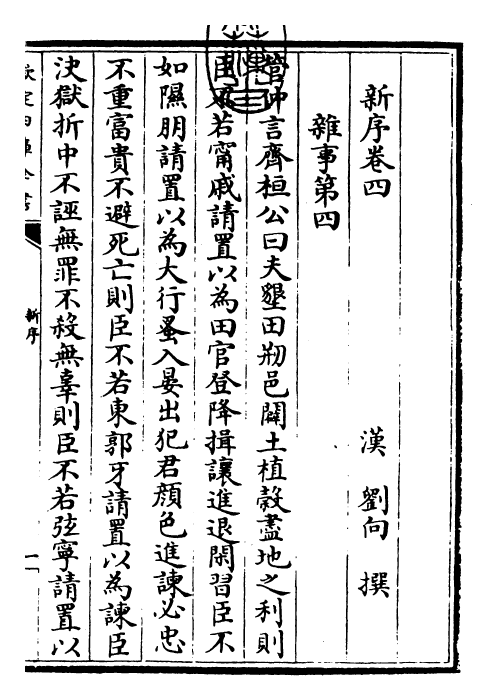 新序卷四
漢　劉向　撰
雜事第四
管仲言齊桓公曰夫墾田剏邑闢土植榖盡地之利則
臣不若甯戚請置以為田官登降揖讓進退閑習臣不
如隰朋請置以為大行蚤入晏出犯君顔色進諫必忠
不重富貴不避死亡則臣不若東郭牙請置以為諫臣
決獄折中不誣無罪不殺無辜則臣不若弦寧請置以
新序
一